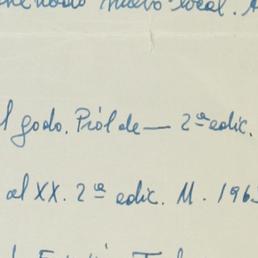 nuevo local.
l godo. Pról de — 2ª edic.
al XX. 2ª edic. M. 196